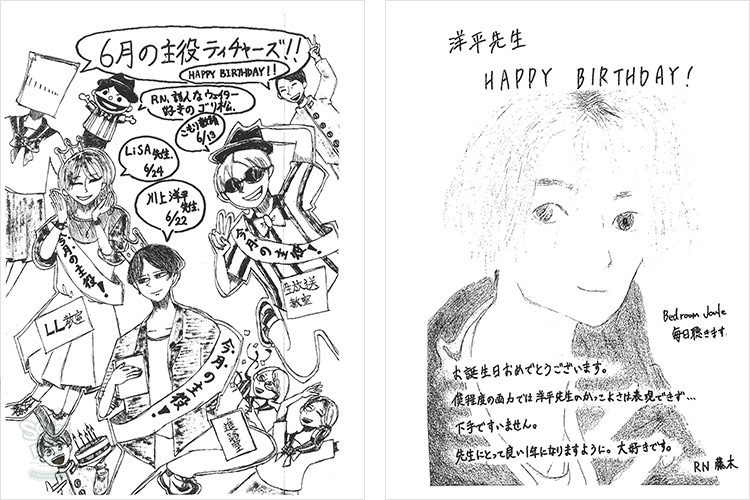 6月の主役ティチャーズ!!
HAPPY BIRTHDAY!!
好きのゴリ松。
こもり教頭
6/13
LiSA先生.
6/24
川上洋平
先生.
6/22
今月の主役!
今月の主役!
今月の主役!
LL教室
生放送
教室
洋平先生
HAPPY BIRTHDAY!
Bedroom Joule
毎日聴きます
お誕生日おめでとうございます。
僕程度の画力では洋平先生のかっこよさは表現できず…
下手ですいません。
先生にとって良い1年になりますように。大好きです。
RN 藤木